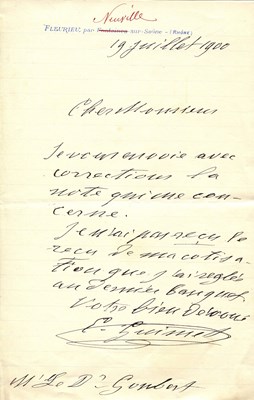 Neuville
FLEURIEU par Fontaines sur-Saône - (Rhône)
19 Juillet 1900
Cher Monsieur
Je vous envoie avec
corrections la
note qui me con-
cerne.
Je n'ai pas reçu le
reçu de ma cotisa-
tion que j'ai réglée
au dernier banquet.
Votre bien dévoué
E. Guimet
Mr Le Dr Goubert